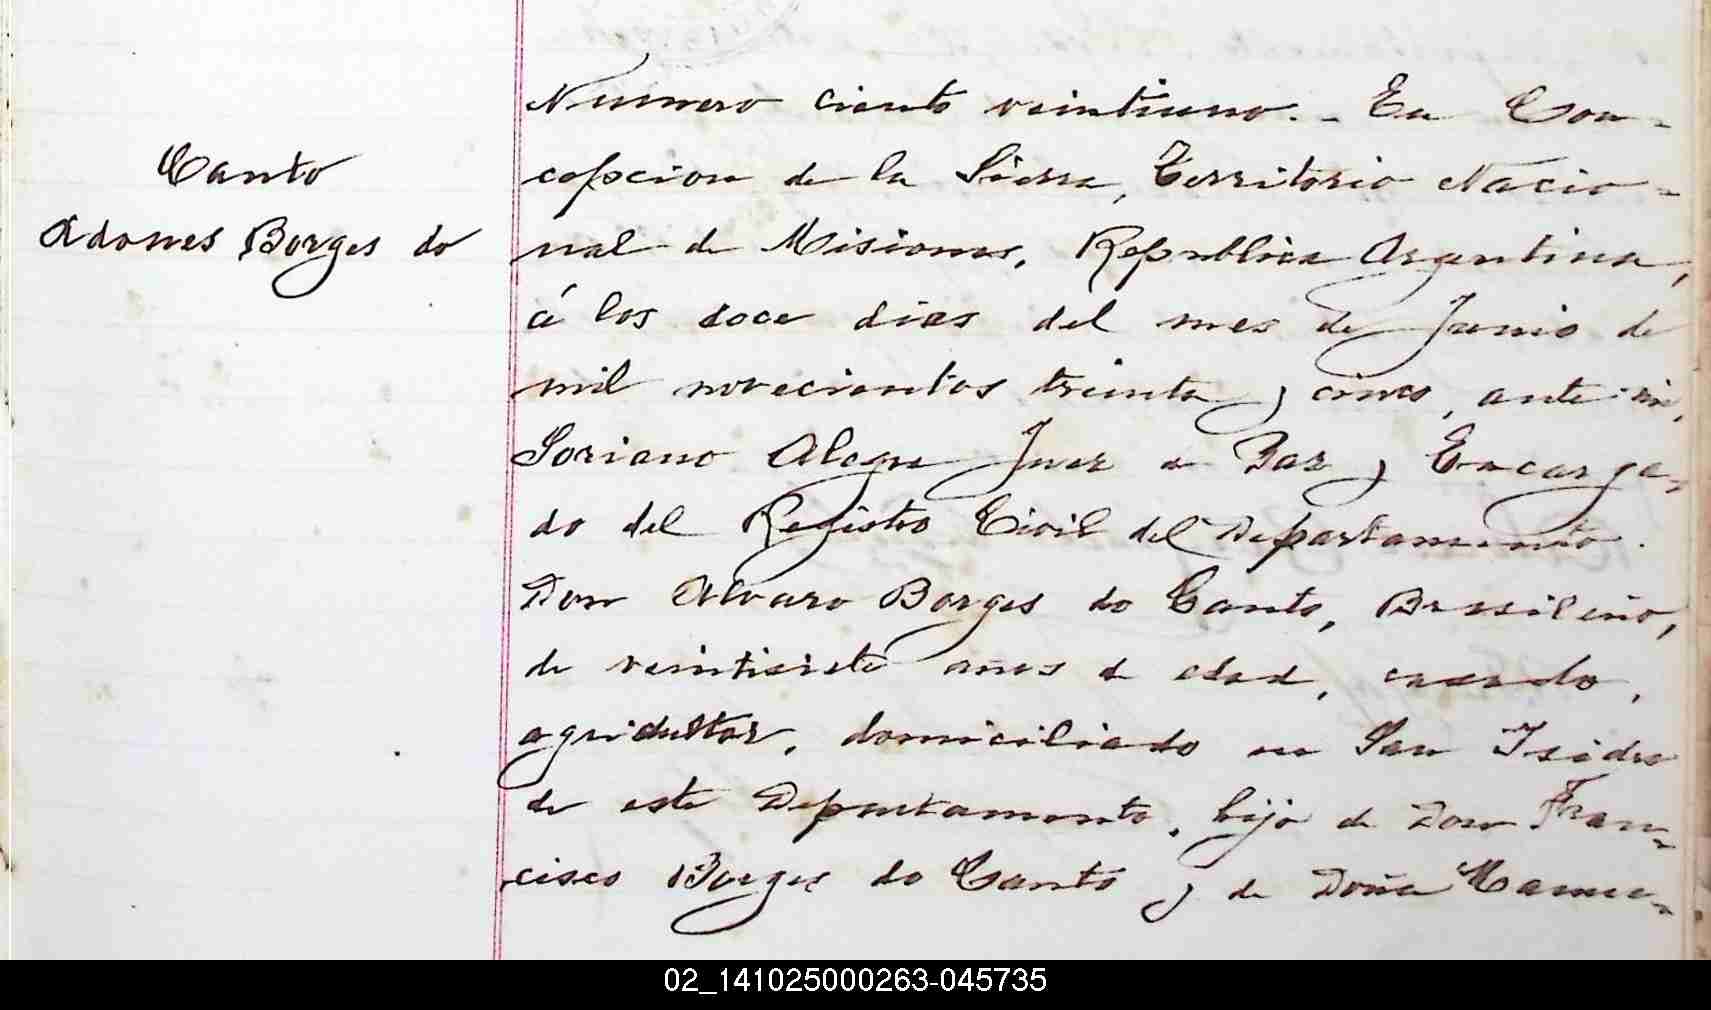 Canto
Adones Borges do
Numero ciento veintiuno. - En Con-
cepcion de la Sierra, Territorio Nacio-
nal de Misiones, Republica Argentina,
á los doce dias del mes de Junio de
mil novecientos treinta y cinco, ante mi,
Soriano Alegre Juez de Paz y Encarga-
do del Registro Civil del Departamento.
Don Alvaro Borges do Canto, Brasileño,
de veintisiete años de edad, casado,
agricultor, domiciliado en San Isidro
de este Departamento, hijo de Don Fran-
cisco Borges do Canto y de Doña Manue-
02_141025000263-045735